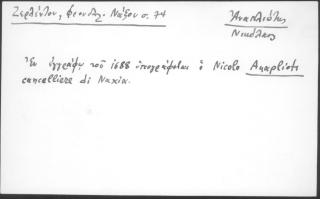 Ζερλέντου, Φεουδ. Νάξου σ. 74
Ἀναπλιώτης
Νικόλαος
Ἐν ἐγγράφῳ τοῦ 1688 ὑπογράφεται ὁ Nicolo Anaplioti
cancelliere di Naxia.